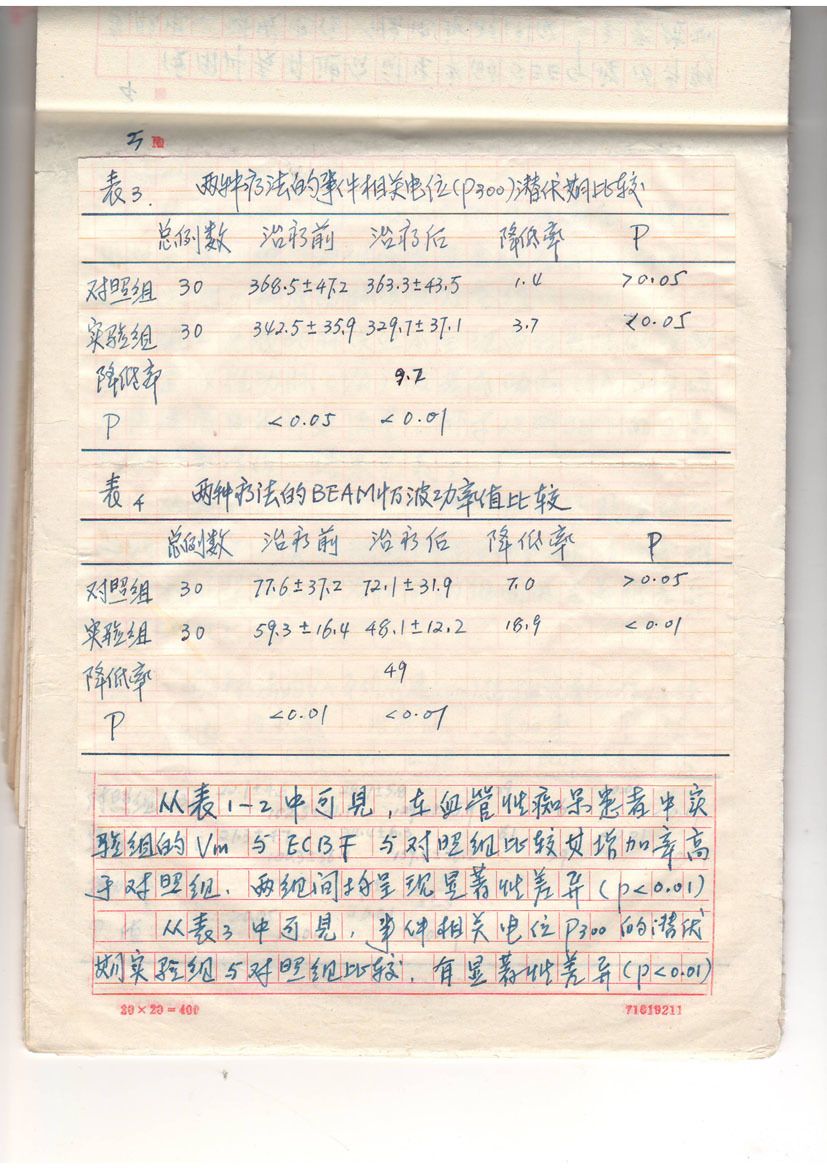 5 №
表3. 两种疗法的事件相关电位(P300)潜伏期比较
总例数 治疗前 治疗后 降低率 P
对照组 30 368.5±47.2 363.3±43.5 1.4 >0.05
实验组 30 342.5±35.9 329.7±37.1 3.7 <0.05
降低率 9.2
P <0.05 <0.01
表4 两种疗法的BEAM 波功率值比较
总例数 治疗前 治疗后 降低率 P
对照组 30 77.6±37.2 72.1±31.9 7.0 >0.05
实验组 30 59.3±16.4 48.1±12.2 18.9 <0.01
降低率 49
P <0.01 <0.01
从表1-2中可見,在血管性痴呆患者中实
验组的Vm与ECBF与对照组比较其增加率高
于对照组.两组间均呈现显著性差异(p<0.01)
从表3中可見,事件相关电位P300的潜伏
期实验组与对照组比较,有显著性差异(p<0.01)
20×20=400 71619211